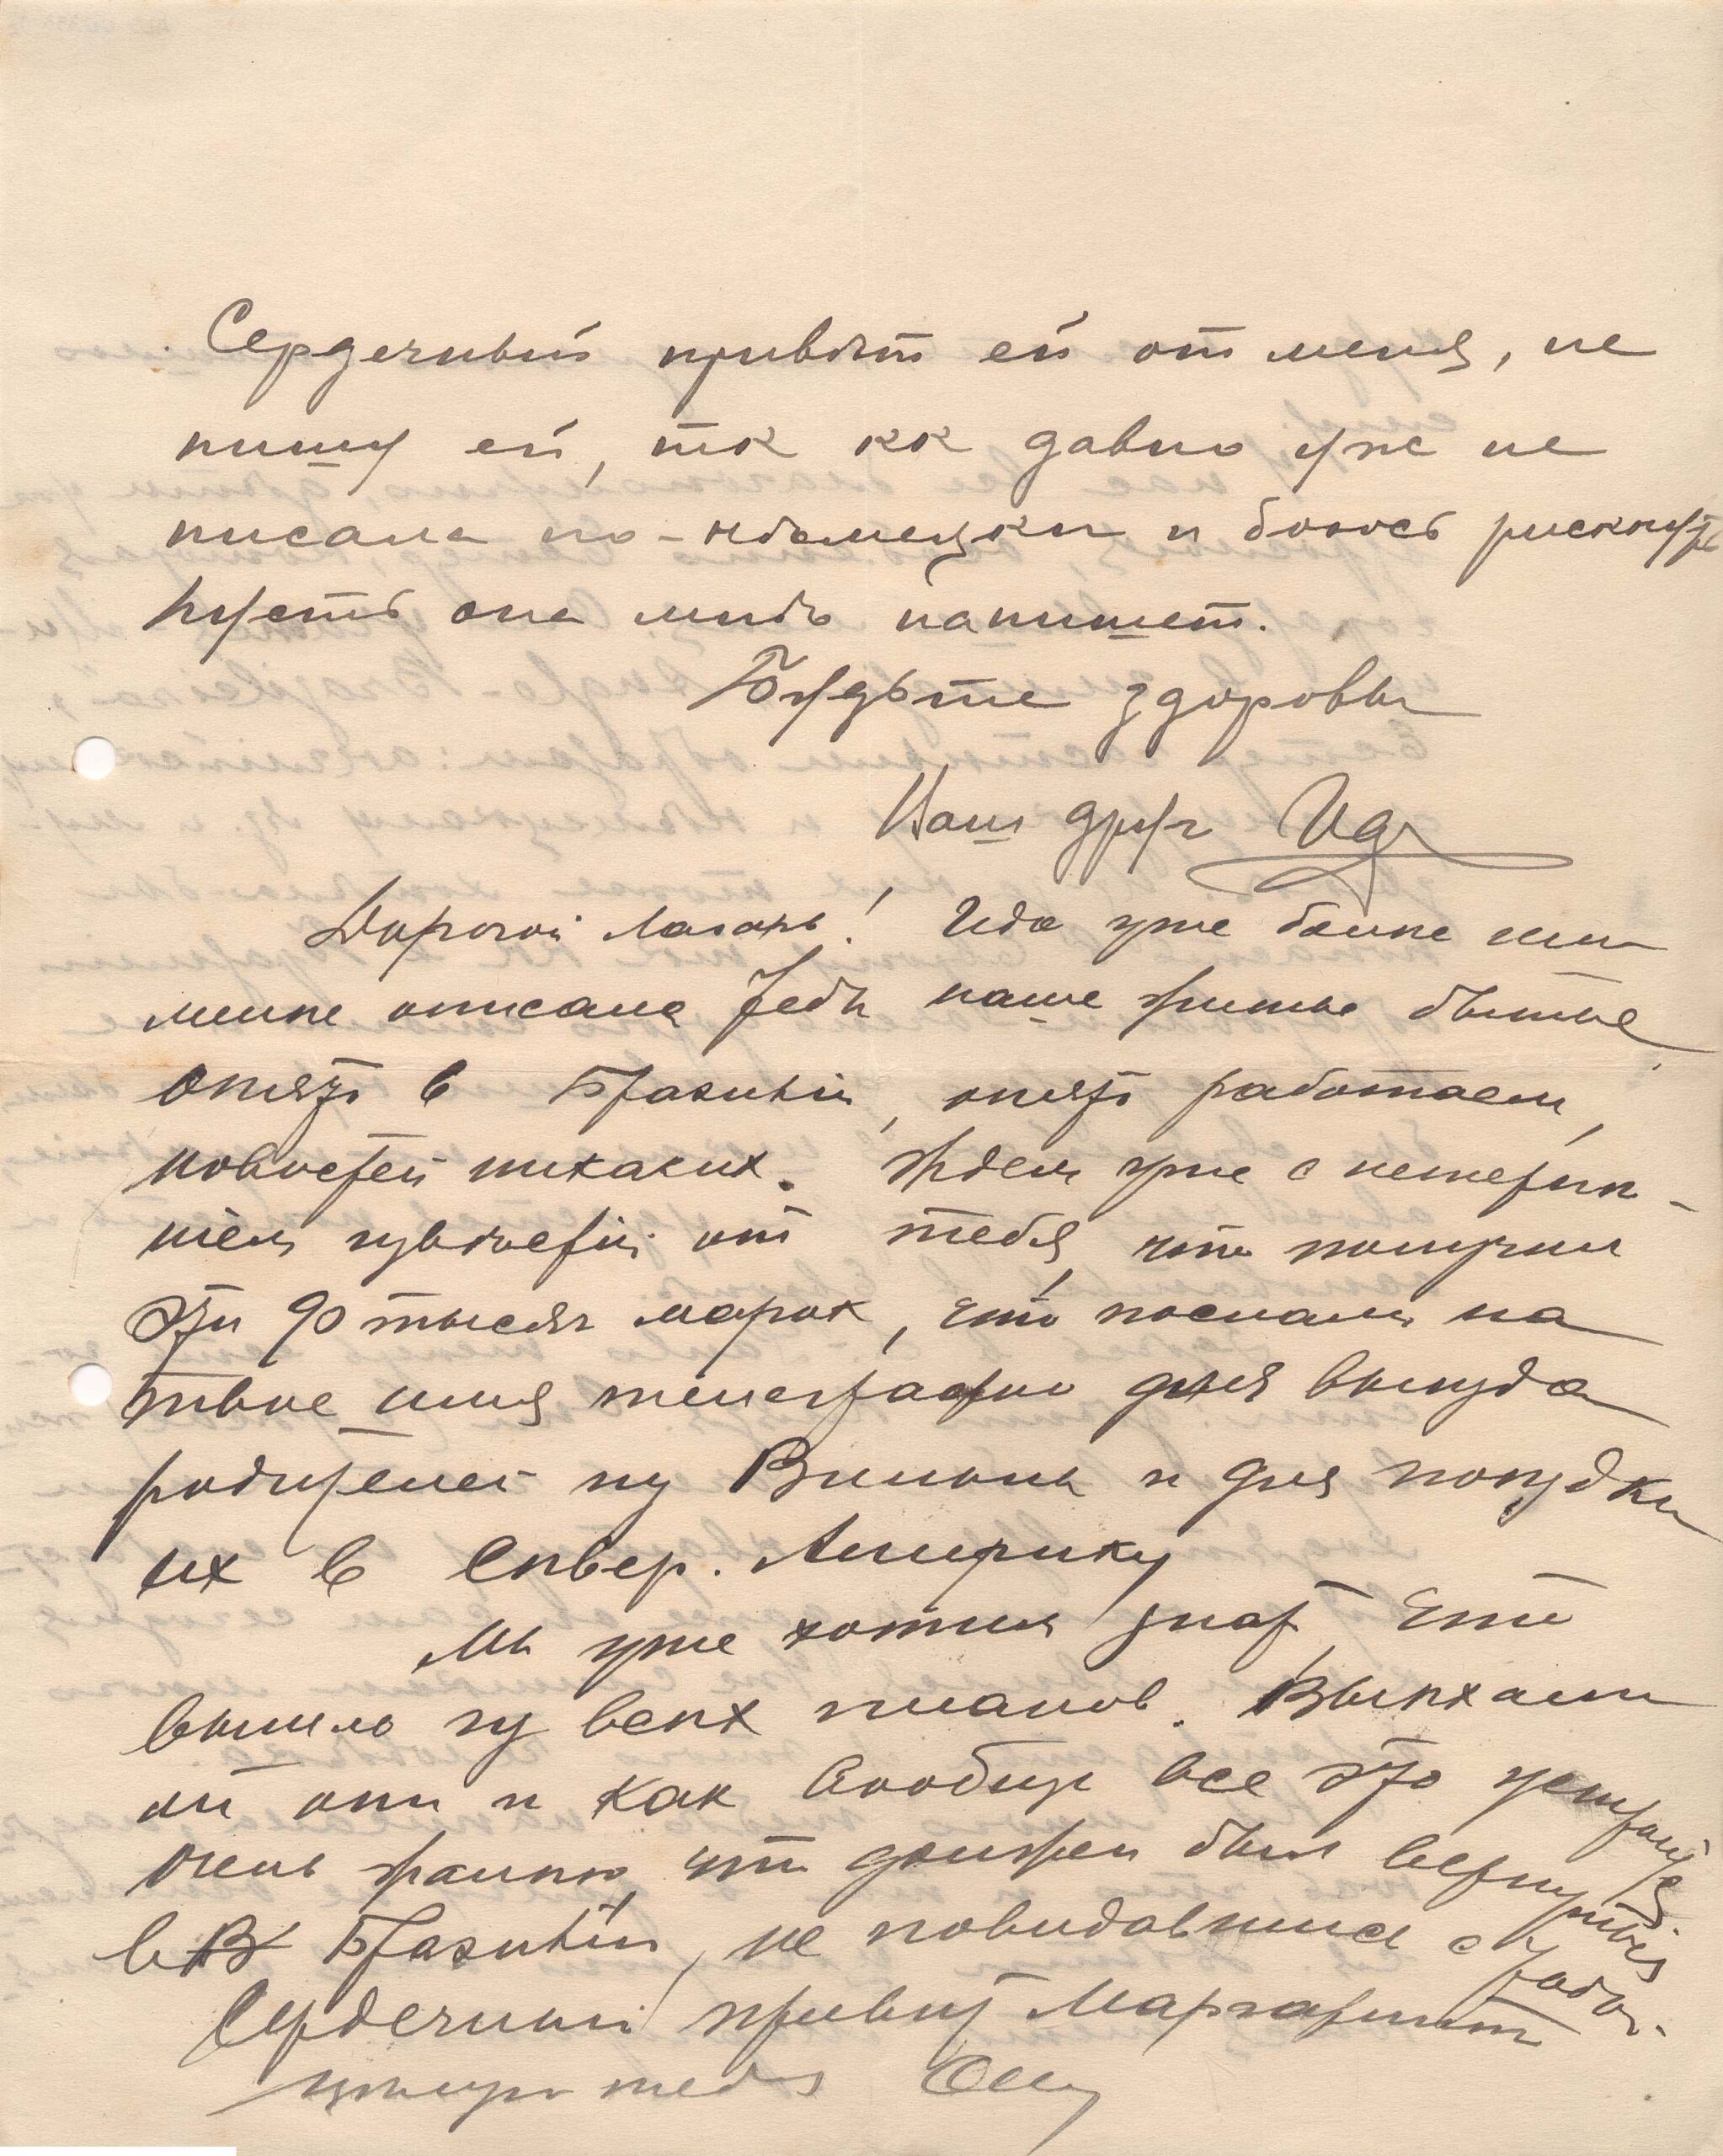 Сердечный привѣт ей от меня, не
пишу ей, тк кк давно уже не
писала по-нѣмецки и боюсь рискнуть
Пусть она мнѣ напишет.
Будьте здоровы
Ваш друг Ида
Дорогой Лазарь! Ида уже болие или
мение описала тебѣ наше житье бытье
опять в Бразилiи, опять работаем,
новостей никаких. Ждем уже с нетерпи-
нiем извѣстiй от тебя, что получил
эти 90 тысяч марок, что послали на
твое имя телеграфно для выезда
родителей из Вильны и для поездки
их в Сѣвер. Америку
Мы уже хотим знать что
вышло из всех планов. Выехали
ли они и как вообще все это
очень жалко что должен был вернуться
в Бразилiю, не повидавшись с
Сердечный привет Маргарит
целую тебя